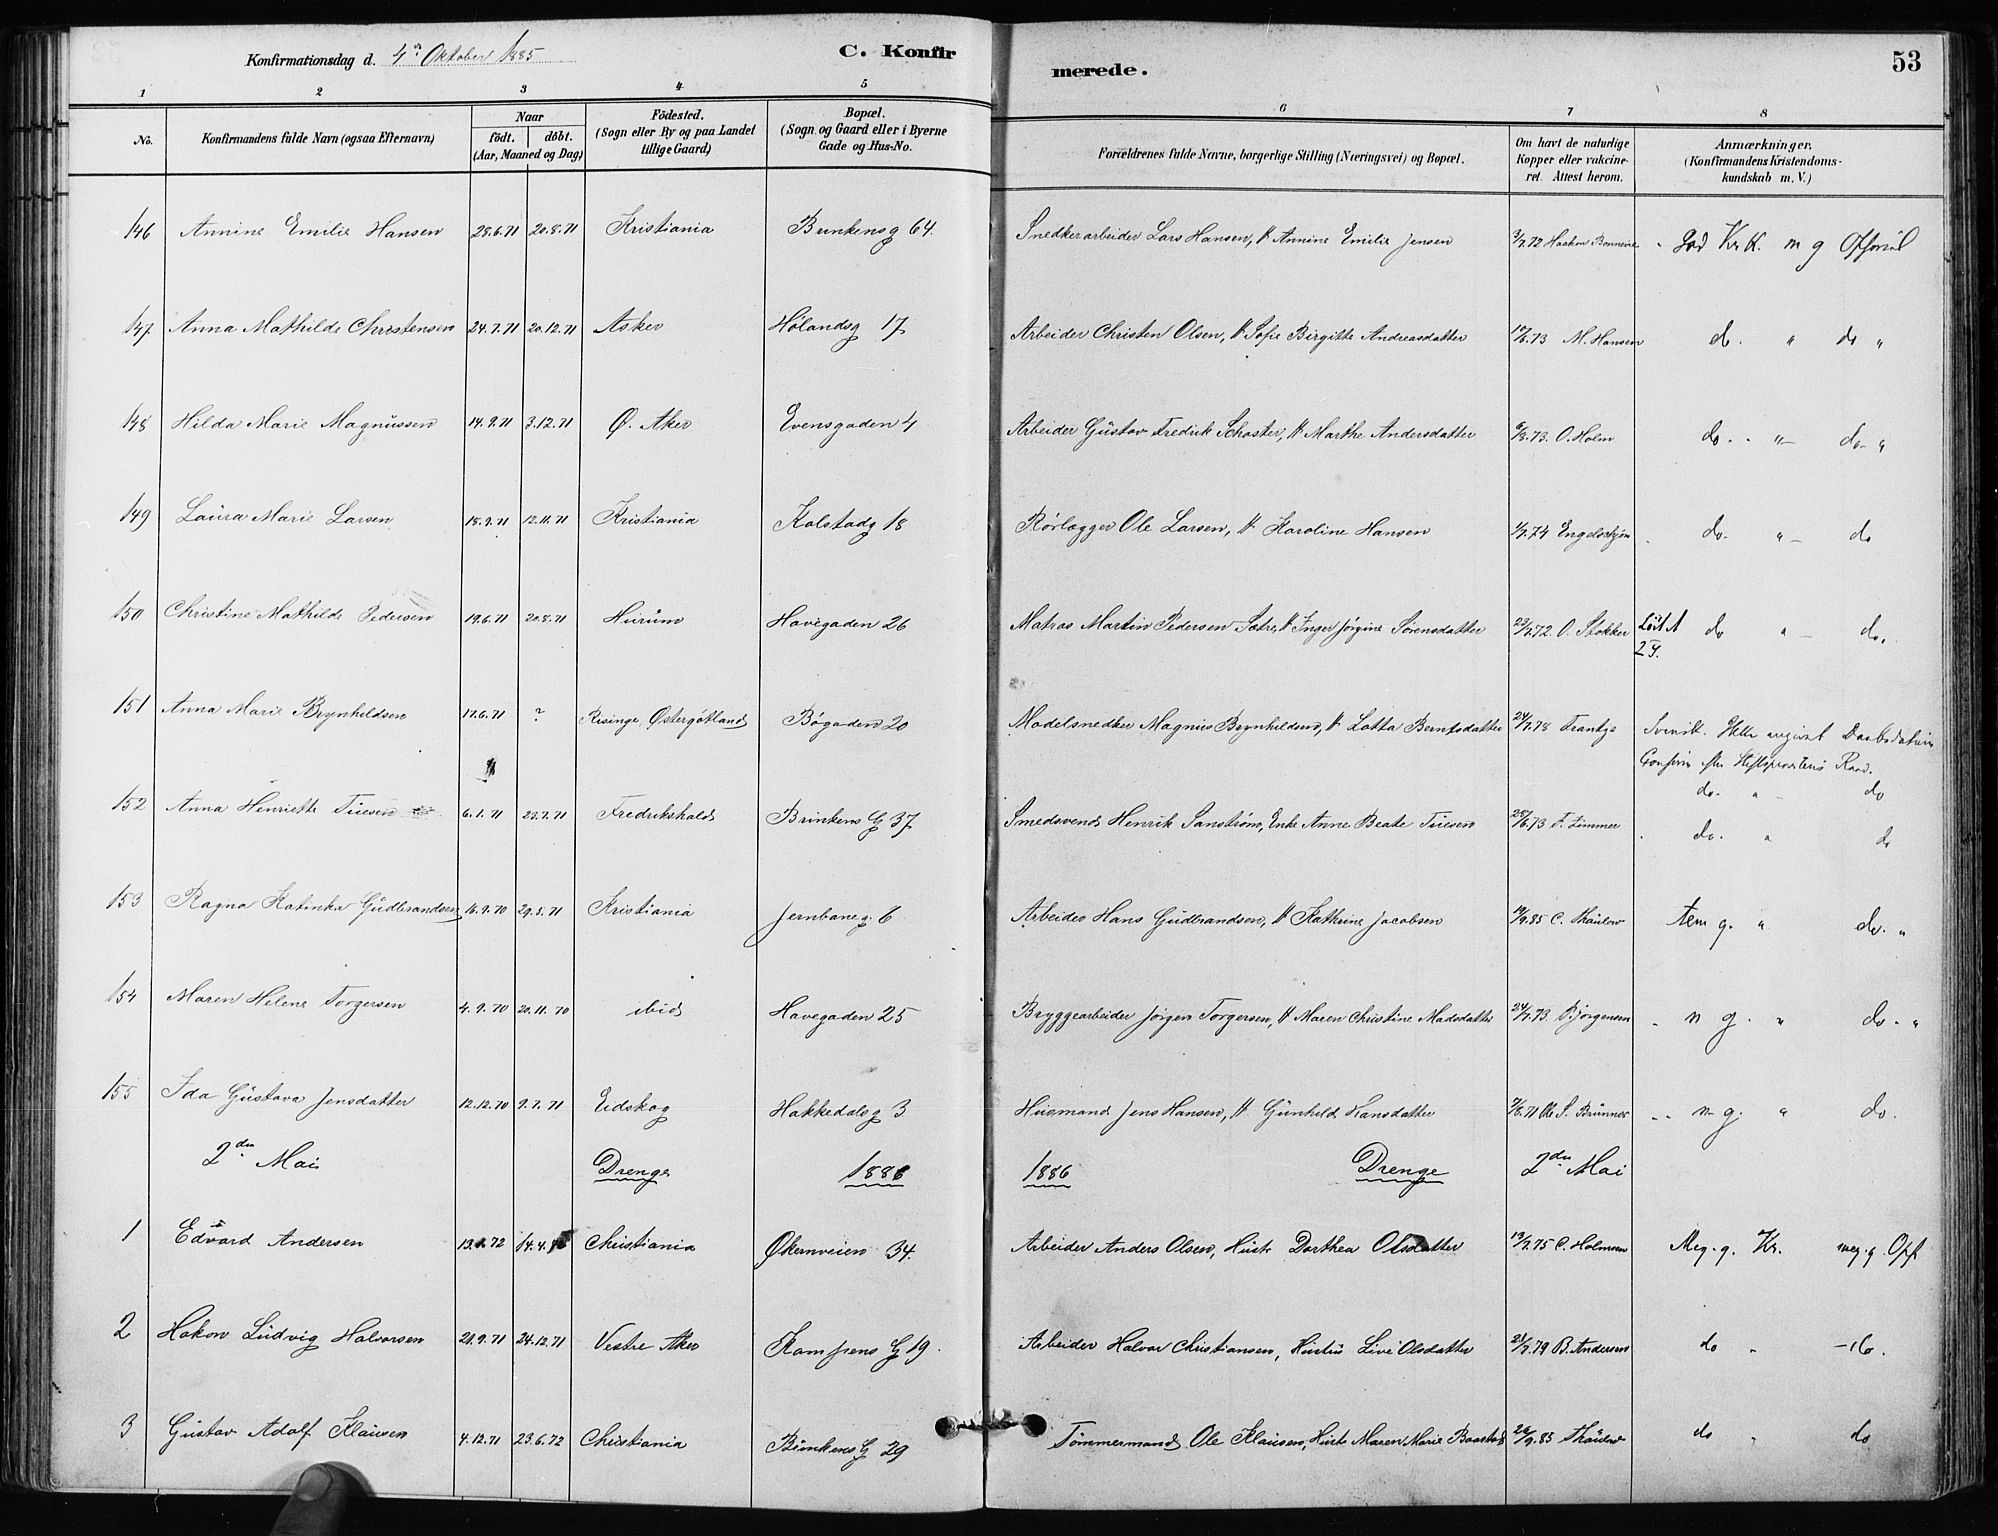 Konfirmationsdag d. 4de Oktober 1885 C. Konfirmerede. 53
1 2 3 4 5 6 7 8
No. Konfirmandens fulde Navn (ogsaa Efternavn) Naar födt. döbt. (Aar, Maaned og Dag) Födested. (Sogn eller By og paa Landet tillige Gaard) Bopæl. (Sogn og Gaard eller i Byerne Gade og Hus-No. Forældrenes fulde Navne, borgerlige Stilling (Næringsvei) og Bopæl. Om havt de naturlige Kopper eller vakcineret. Attest herom. Anmærkninger. (Konfirmandens Kristendomskundskab m. V.)
146 Annine Emilie Hansen 28.6.71 20.8.71 Kristiania Brinkensg 64. Snedkerarbeider Lars Hansen, H Annine Emilie Jensen 3/7.72 God Kr.K. m g Opførsel
147 Anna Mathilde Christensen 24.7.71 20.12.71 Asker Hølandsg 17 Arbeider Christen Olsen, H Sofie Birgitte Andreasdatter 10/6.73 M. Hansen do. " do "
148 Hilda Marie Magnussen 14.9.71 3.12.71 Ø. Aker Evensgaden 4 Arbeider Gustav Fredrik Schøster, H Marthe Andersdatter 6/8.73. O. Holm do. " do "
149 Laura Marie Larsen 18.9.71 12.11.71 Kristiania Kolstadg 18 Rørlægger Ole Larsen, H Karoline Hansen 1/7.74 Engelschjøn do. " do
150 Christine Mathilde Pedersen 19.6.71 20.8.71 Hurum Havegaden 26 Matros Martin Pedersen Sætre, H Inger Jørgine Sørensdatter 23/7.72. O. Stokker do " do.
151 Anna Marie Brynhildsen 17.6.71 ? Risinge, Østergøtland Bøgaden 20 Modelsnedker Magnus Brynhildsen, H Lotta Berntsdatter 24/7.78 Frantze Svensk. Ikke angivet Daabsdatum
Confirm. efter Stiftsprovstens Raad.
do. " do
152 Anna Henriette Tuesen 6.1.71 23.7.71 Fredrikshald Brinkens G 37 Smedsvend Henrik Sanstrøm, Enke Anne Beate Tuesen 28/6.73 F. Zimmer do. " do
153 Ragna Katinka Gudbrandsen 16.9.70 29.5.71 Kristiania Jernbaneg. 6 Arbeider Hans Gudbrandsen, H Kathrine Jacobsen 19/9.85 C. Thaulow Tem g. " do. "
154 Maren Helene Torgersen 4.9.70 20.11.70 ibid Havegaden 25 Bryggearbeider Jørgen Torgersen, H Maren Christine Madsdatter 24/7.73. P. Jørgensen m g. " do. "
155 Ida Gustava Jensdatter 12.12.70 9.7.71 Eidskog Hakkedalsg 3 Husmand Jens Hansen, H Gunhild Hansdatter 7/8.71 Ole S. Brunner m g. " do.
2den Mai Drenge 1886 1886 Drenge 2den Mai
1 Edvard Andersen 13.1.72 14.4.72 Christiania Økernveien 34. Arbeider Anders Olsen, Hustr. Dorthea Olsdatter 13/7.75 C. Holmsen Meg. g. Kr. meg. g. Opf.
2 Hakon Ludvig Halvorsen 21.9.71 24.12.71 Vestre Aker Kampens G 19. Arbeider Halvor Christiansen, Hustru Live Olsdatter 21/7.79 B. Andersen do " do.
3 Gustav Adolf Klausen 4.12.71 23.6.72 Christiania Brinkens G 29 Tømmermand Ole Klausen, Hust. Maren Marie Baastad 26/9.85 Thaulow do " do